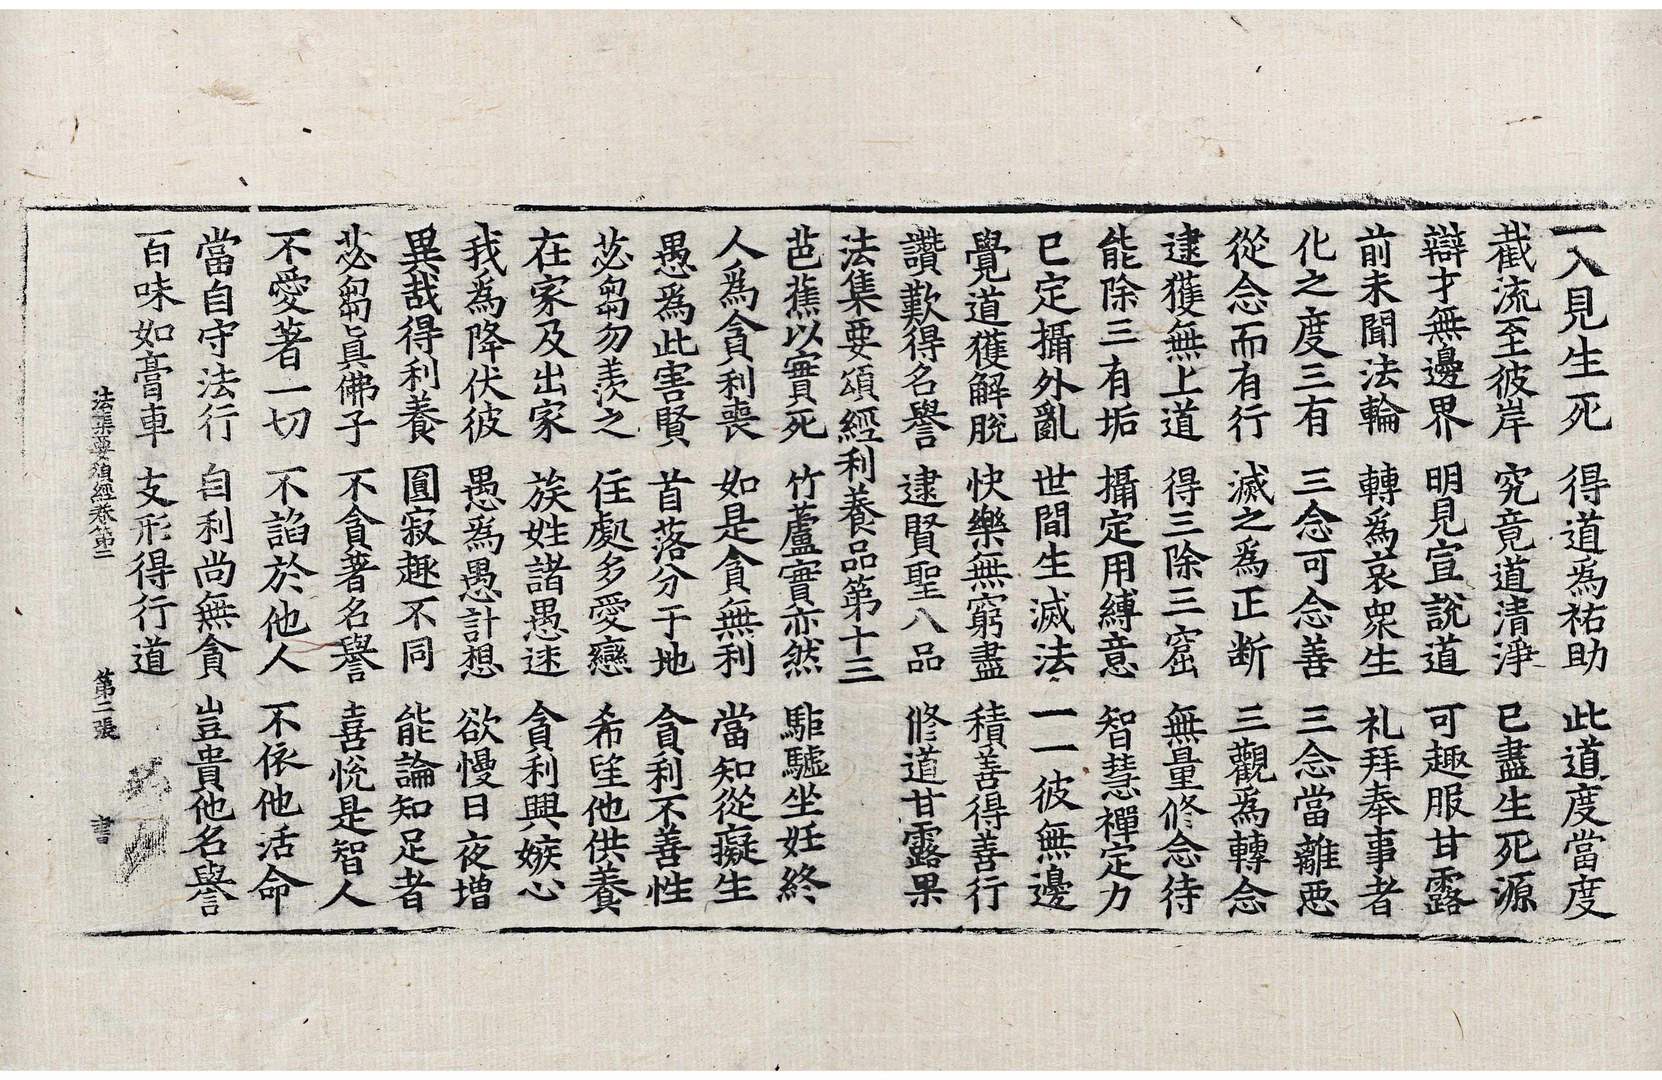 一入見生死　得道為祐助　此道度當度
截流至彼岸　究竟道清淨　已盡生死源
辯才無邊界　明見宣說道　可趣服甘露
前未聞法輪　轉為哀衆生　礼拜奉事者
化之度三有　三念可念善　三念當離惡
從念而有行　滅之為正斷　三觀為轉念
逮獲無上道　得三除三窟　無量修念待
能除三有垢　攝定用縛意　智慧禪定力
已定攝外亂　世間生滅法　一一彼無邊
覺道獲解脫　快樂無窮盡　積善得善行
讚歎得名譽　逮賢聖八品　修道甘露果
法集要頌經利養品第十三
芭蕉以實死　竹蘆實亦然　駏驉坐妊終
人為貪利喪　如是貪無利　當知從癡生
愚為此害賢　首落分于地　貪利不善性
苾芻勿羨之　住處多愛戀　希望他供養
在家及出家　族姓諸愚迷　貪利興嫉心
我為降伏彼　愚為愚計想　欲慢日夜增
異哉得利養　圓寂趣不同　能論知足者
苾芻真佛子　不貪著名譽　喜悅是智人
不愛著一切　不諂於他人　不依他活命
當自守法行　自利尚無貪　豈貴他名譽
百味如膏車　支形得行道
法集要頌經卷第二　第二張　書